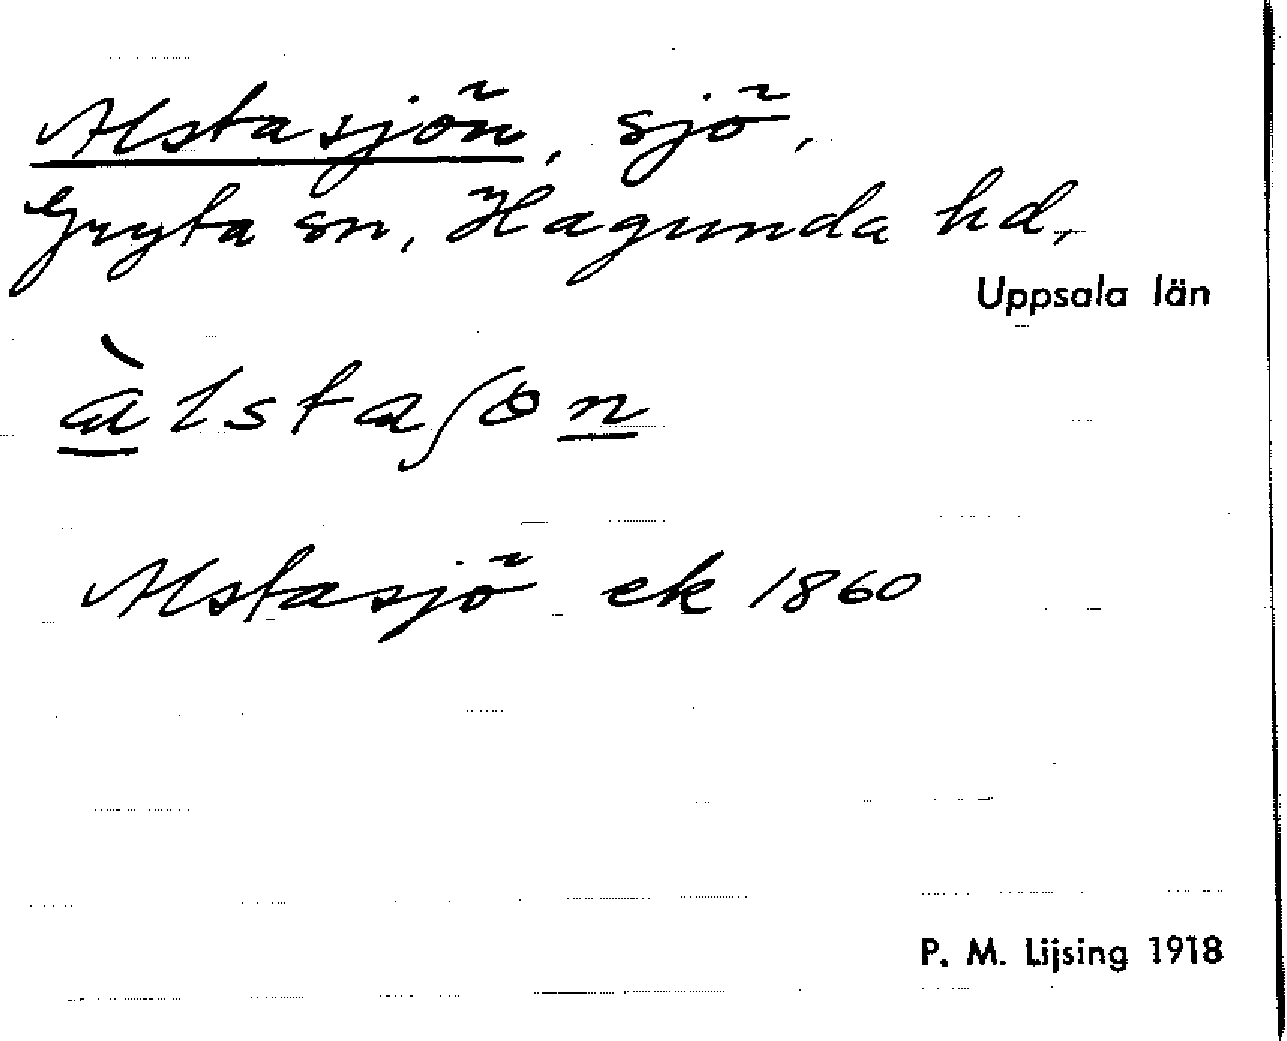 Alstasjön, sjö,
Gryta sn, Hagunda hd,
Uppsala län
àlstaʃɵn
Alstasjö ek 1860
P. M. Lijsing 1918